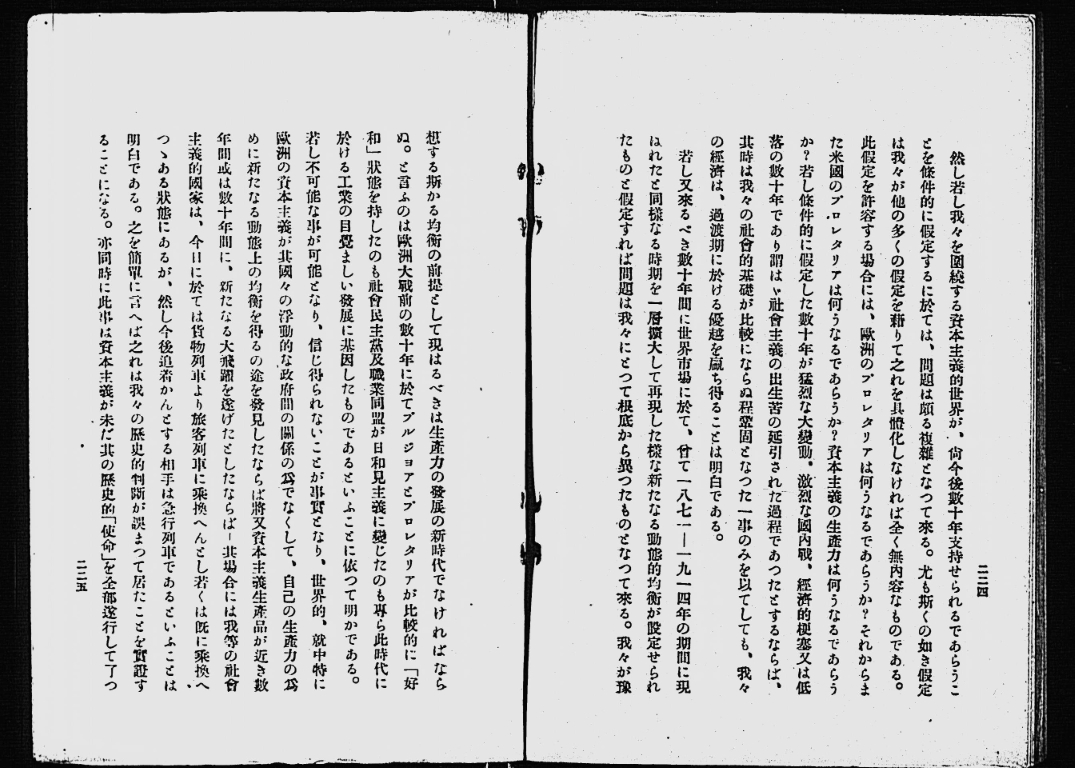 二二四
然し若し我々を圍繞する資本主義的世界が、尙今後數十年支持せられるであらうこ
とを條件的に假定するに於ては、問題は頗る複雜となつて來る。尤も斯くの如き假定
は我々が他の多くの假定を藉りて之れを具體化しなければ全く無內容なものである。
此假定を許容する場合には、歐洲のプロレタリアは何うなるであらうか?それからま
た米國のプロレタリアは何うなるであらうか?資本主義の生產力は何うなるであらう
か?若し條件的に假定した數十年が猛烈な大變動、激烈な國內戰、經濟的梗塞又は低
落の數十年であり謂はゞ社會主義の出生苦の延引された過程であつたとするならば、
其時は我々の社會的基礎が比較にならぬ程鞏固となつた一事のみを以てしても、我々
の經濟は、過渡期に於ける優越を贏ち得ることは明白である。
若し又來るべき數十年間に世界市場に於て、曾て一八七一―一九一四年の期間に現
はれたと同樣なる時期を一層擴大して再現した樣な新たなる動態的均衡が設定せられ
たものと假定すれば問題は我々にとつて根底から異つたものとなつて來る。我々が豫
想する斯かる均衡の前提として現はるべきは生產力の發展の新時代でなければなら
ぬ。と言ふのは歐洲大戰前の數十年に於てブルジョアとプロレタリアが比較的に「好
和」狀態を持したのも社會民主黨及職業同盟が日和見主義に變じたのも專ら此時代に
於ける工業の目覺ましい發展に基因したものであるといふことに依つて明かである。
若し不可能な事が可能となり、信じ得られないことが事實となり、世界的、就中特に
歐洲の資本主義が其國々の浮動的な政府間の關係の爲でなくして、自己の生產力の爲
めに新たなる動態上の均衡を得るの途を發見したならば將又資本主義生產品が近き數
年間或は數十年間に、新たなる大飛躍を遂げたとしたならば―其場合には我等の社會
主義的國家は、今日に於ては貨物列車より旅客列車に乘換へんとし若くは既に乘換へ
つゝある狀態にあるが、然し今後追着かんとする相手は急行列車であるといふことは
明白である。之を簡單に言へば之れは我々の歷史的判斷が誤まつて居たことを實證す
ることになる。亦同時に此事は資本主義が未だ其の歷史的「使命」を全部遂行して了つ
二二五